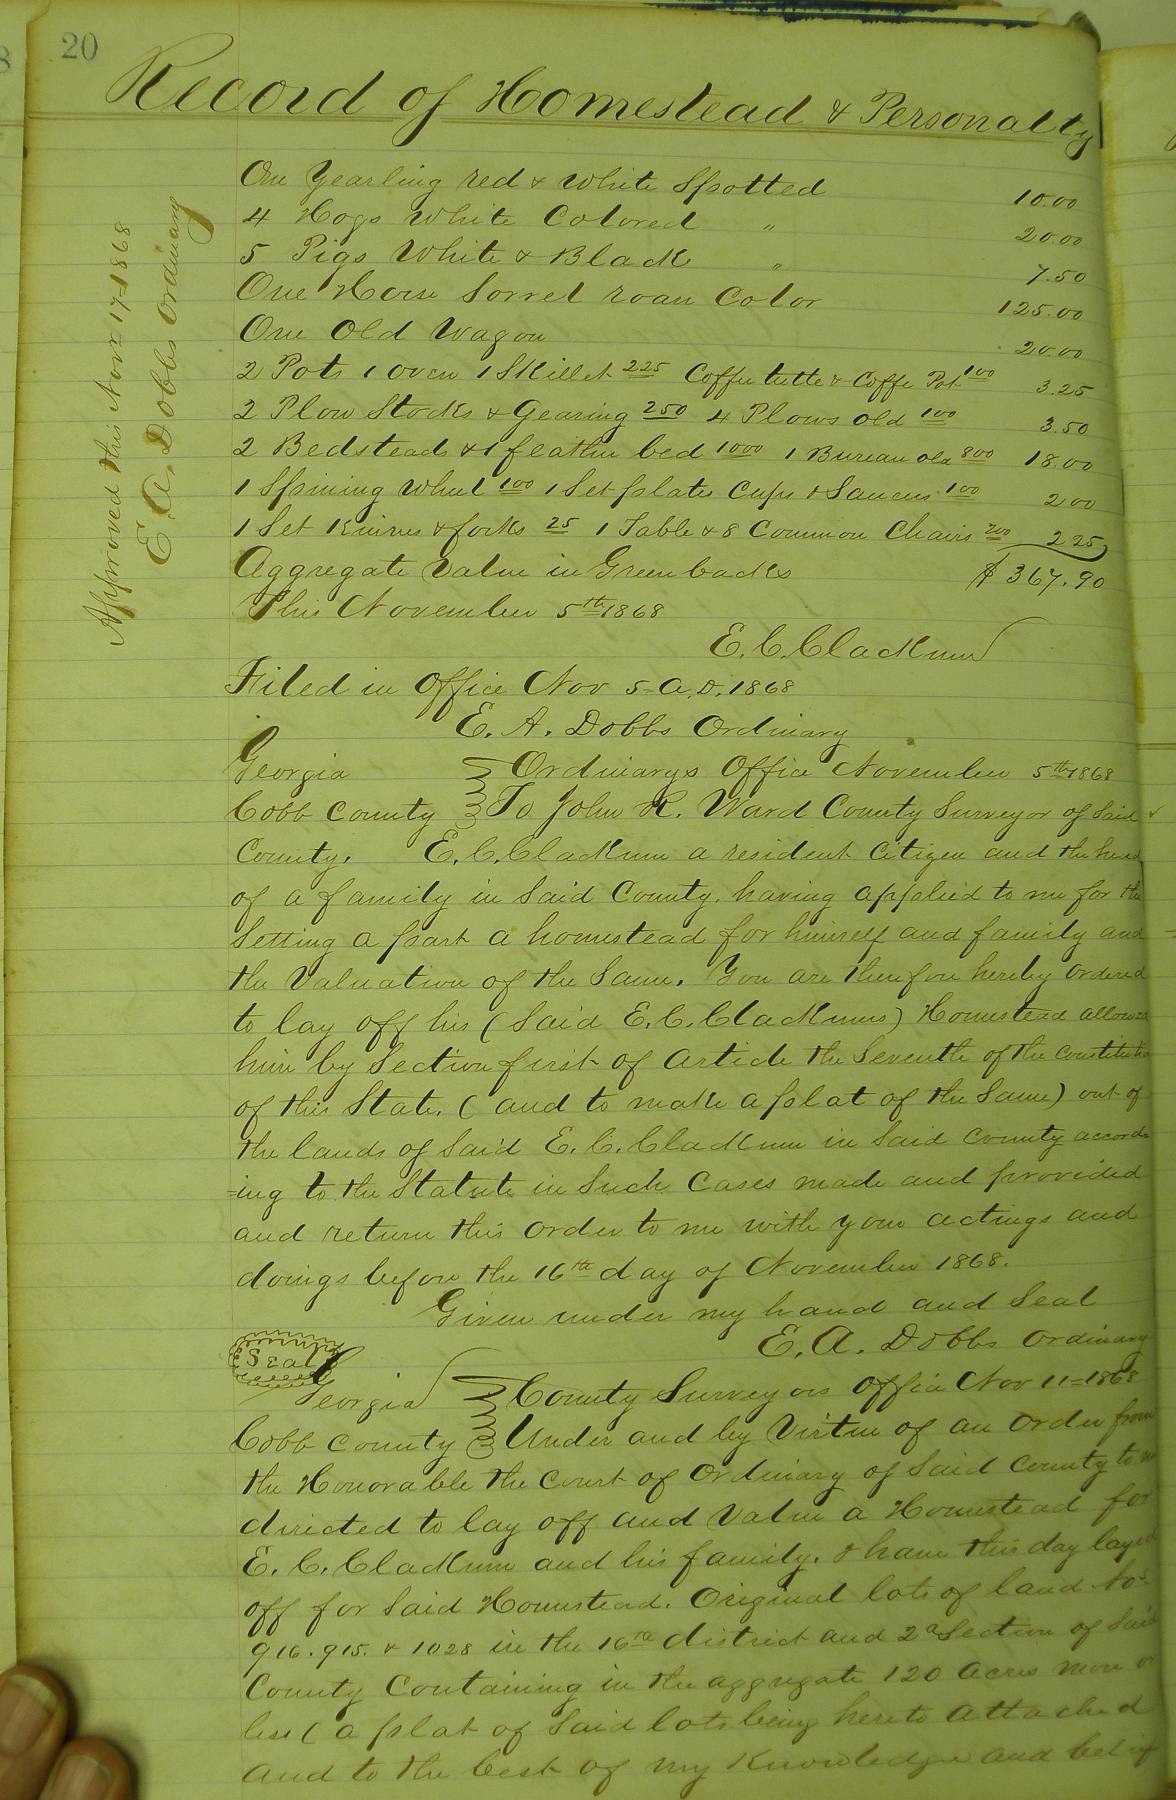 20
Record of Homestead & Personalty
Approved this Nov 17-1868
E. A. Dobbs Ordinary
One Yearling red & White Spotted 10.00
4 Hogs White Colored " 20.00
5 Pigs White & Black " 7.50
One Horse Sorrel roan Color 125.00
One Old Wagon 20.00
2 Pots 1 oven 1 Skillet 2.25 Coffee kettle & Coffe Pot 1.00 3.25
2 Plow Stocks & Gearing 2.50 4 Plows old 1.00 3.50
2 Bedsteads & 1 feather bed 10.00 1 Bureau old 8.00 18.00
1 Spining Wheel 1.00 1 Set plates Cups & Saucers 1.00 2.00
1 Set Knives & forks 25 1 Table & 8 Common Chairs 2.00 2.25
Aggregate Value in Greenbacks $367.90
This November 5th 1868
E. C. Clackum
Filed in Office Nov 5- A.D. 1868
E. A. Dobbs Ordinary
Georgia Ordinarys Office November 5th 1868
Cobb County To John R. Ward County Surveyor of Said
County. E. C. Clackum a resident Citizen and the head
of a family in Said County. having applied to me for the
Setting a part a homestead for himself and family and
the Valuation of the Same. You are therefore hereby ordered
to lay off his (Said E. C. Clackums) Homestead allowed
him by Section first of Article the Seventh of the Constitution
of this State. ( and to make a plat of the Same) out of
the lands of Said E. C. Clackum in Said County accord
=ing to the Statute in Such Cases made and provided
and return this order to me with your actings and
doings before the 16th day of November 1868.
Given under my hand and Seal
E. A. Dobbs Ordinary
Seal
Georgia County Surveyors Office Nov 11=1868
Cobb County Under and by Virtue of an Order from
the Honorable the Court of Ordinary of Said County to me
directed to lay off and Value a Homestead for
E. C. Clackum and his family. I have this day layed
off for Said Homestead. Original lots of land Nos
916. 915. & 1028 in the 16th district and 2d Section of Said
County Containing in the aggregate 120 Acres more or
less ( a plat of Said lots being hereto Attached
and to the best of my Knowledge and belief